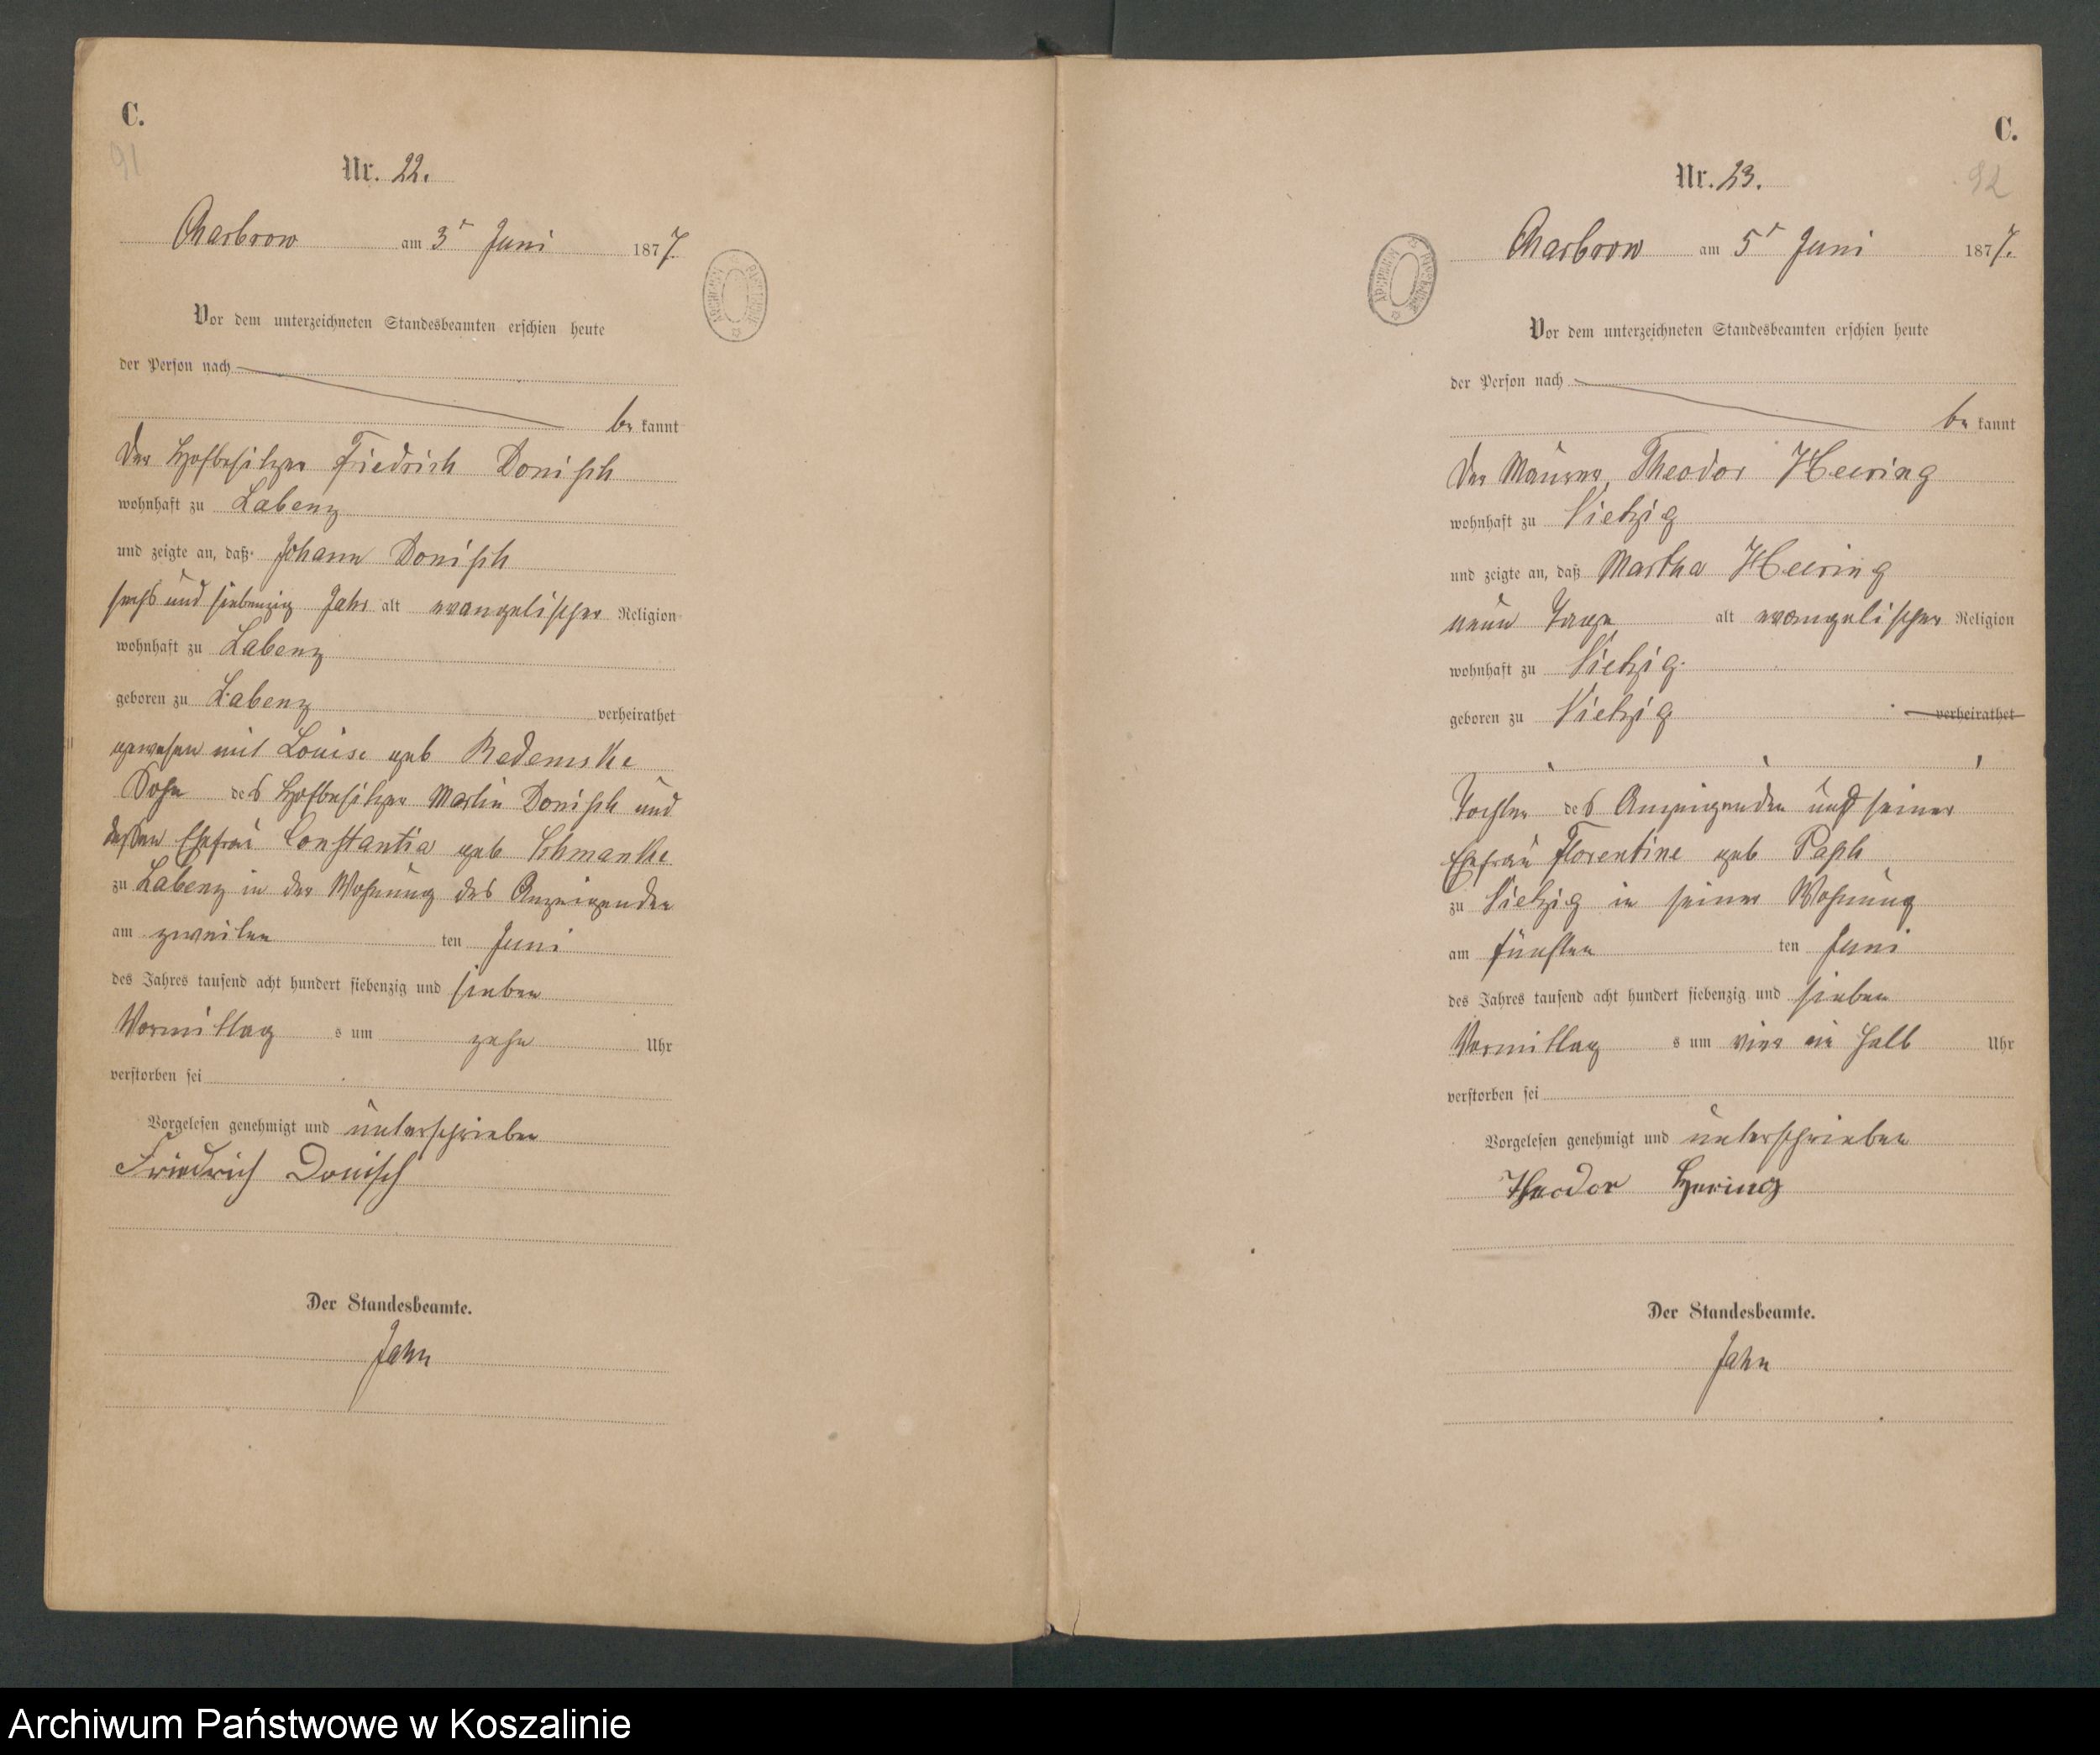 C.
91
Nr. 22.
Charbrow am 3t Juni 1877.
Vor dem unterzeichneten Standesbeamten erschien heute
der Person nach
be kannt
der Hofbesitzer Friedrich Donisch
wohnhaft zu Labenz
und zeigte an, daß Johann Donisch
sechs und siebenzig Jahr alt evangelischer Religion
wohnhaft zu Labenz
geboren zu Labenz verheirathet
gewesen mit Louise geb Rademske
Sohn des Hofbesitzer Martin Donisch und
dessen Ehefrau Constantia geb Schmanke
zu Labenz in der Wohnung des Anzeigenden
am zweiten ten Juni
des Jahres tausend acht hundert siebenzig und sieben
Vormittag s um zehn Uhr
verstorben sei
Vorgelesen genehmigt und unterschrieben
Friedrich Donisch
Der Standesbeamte.
Jahn
C.
92
Nr. 23.
Charbrow am 5t Juni 1877.
Vor dem unterzeichneten Standesbeamten erschien heute
der Person nach
be kannt
der Maurer, Theodor Heering
wohnhaft zu Vietzig
und zeigte an, daß Martha Heering
neun Tage alt evangelischer Religion
wohnhaft zu Vietzig
geboren zu Vietzig verheirathet
Tochter des Anzeigenden und seiner
Ehefrau Florentine geb Papk
zu Vietzig in seiner Wohnung
am fünften ten Juni
des Jahres tausend acht hundert siebenzig und sieben
Vormittag s um vier ein halb Uhr
verstorben sei
Vorgelesen genehmigt und unterschrieben
Theodor Hering
Der Standesbeamte.
Jahn
Archiwum Państwowe w Koszalinie